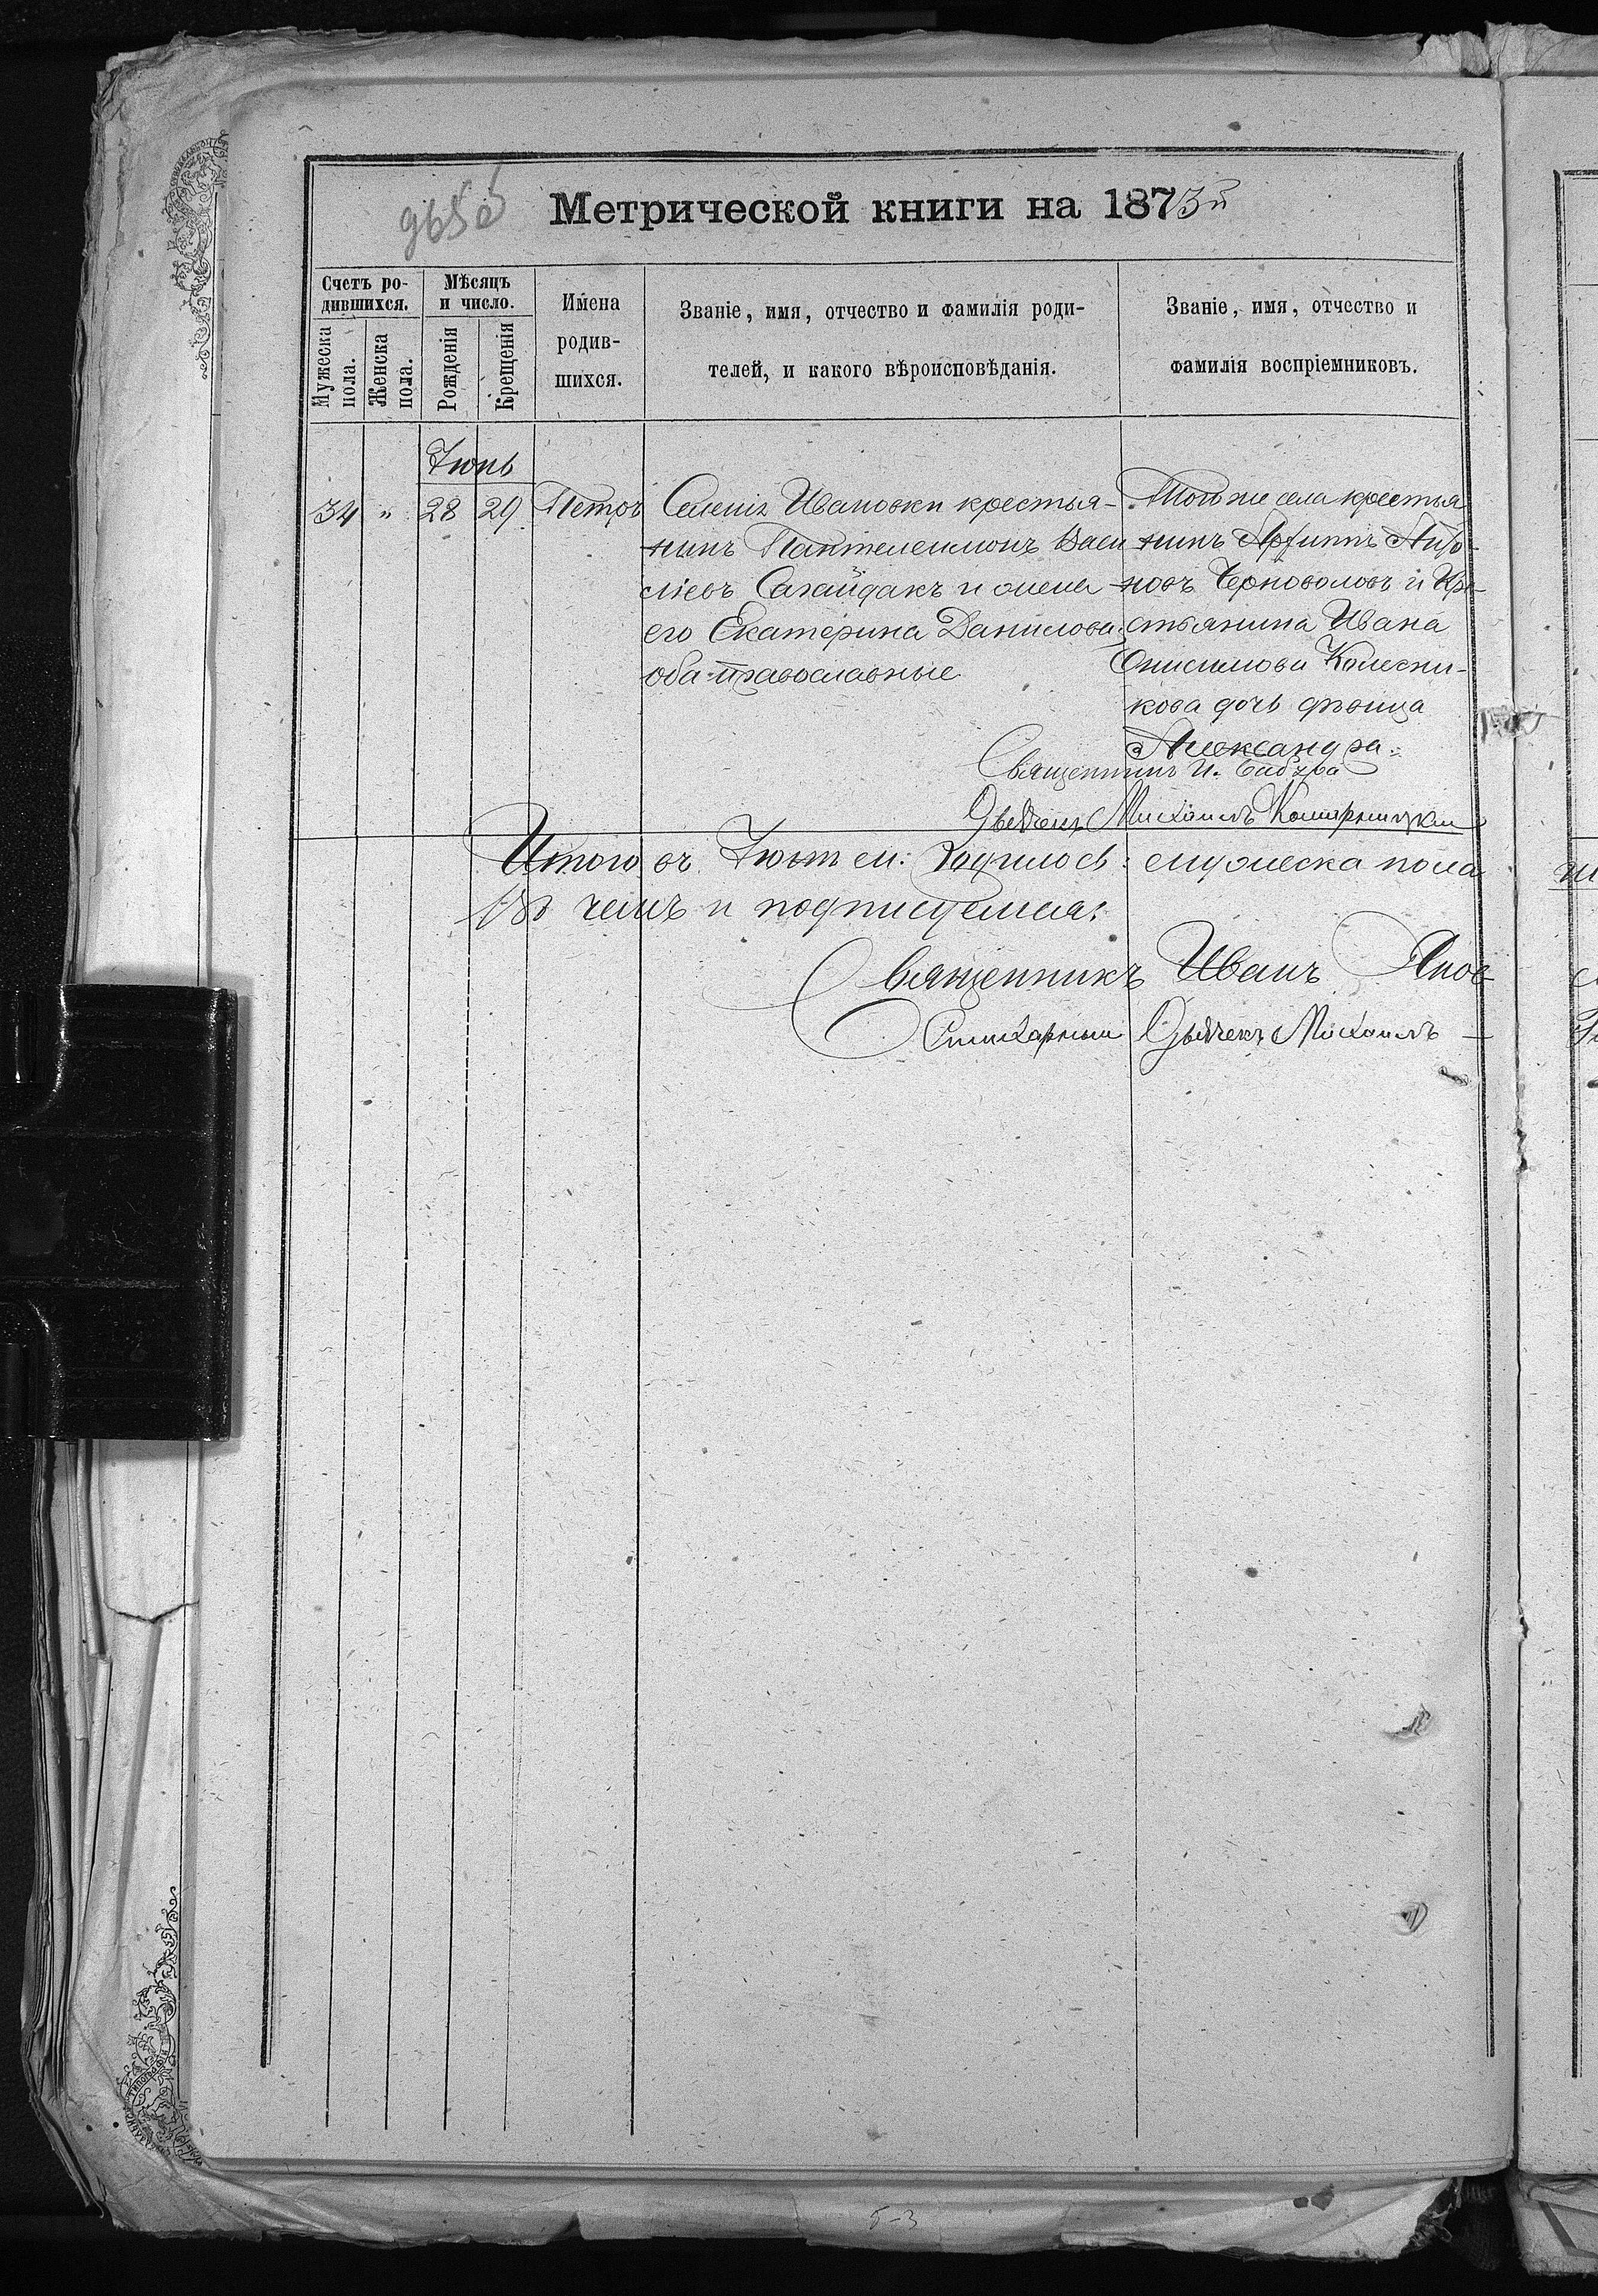 Метрической книги на 1873й
Счетъ ро-
дившихся.
Мужеска
пола.
Женска
пола.
Мѣсяцъ
и число.
Рожденія
Крещенія
Имена
родив-
шихся.
Званіе, имя, отчество и фамилія роди-
телей, и какого вѣроисповѣданія.
Званіе, имя, отчество и
фамилія воспріемниковъ.
Іюнь
34 " 28 29 Петръ
Селенія Ивановки крестья-
нинъ Пантелеимонъ Васи
ліевъ Сагайдакъ и жена
его Екатерина Данилова;
оба православные
Тогоже села крестья
нинъ
новъ Чорноволовъ и Кре-
стьянина Ивана
Онисимова Колесни-
кова дочь дѣвица
Александра
Священникъ И.
Дьячекъ Михаилъ
Итого въ Іюнѣ м: родилось: мужеска пола
Въ чемъ и подписуемся:
Священникъ Иванъ
Дьячекъ Михаилъ
5-3